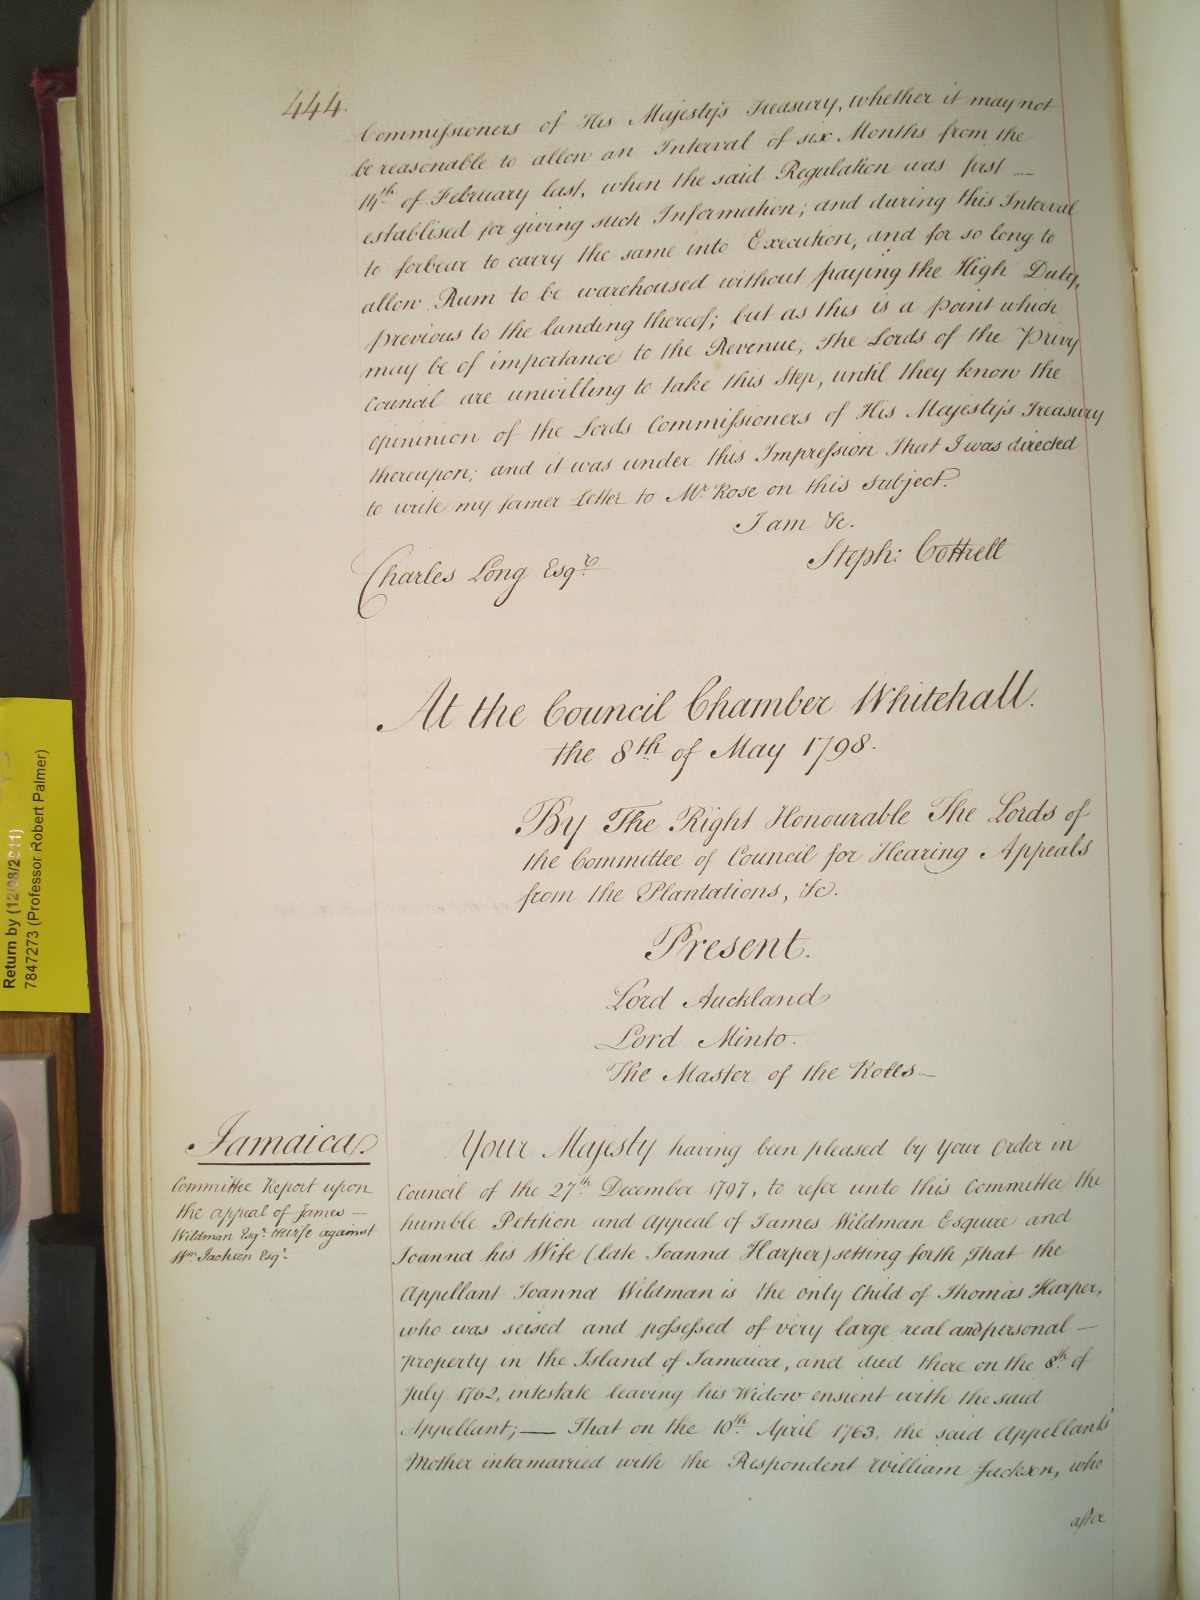 444.
Commissioners of His Majesty's Treasury, whether it may not
be reasonable to allow an Interval of six Months from the
14th of February last, when the said Regulation was first —
establised for giving such Information; and during this Interval
to forbear to carry the same into Execution, and for so long to
allow Rum to be warehoused without paying the High Duty,
previous to the landing thereof; but as this is a point which
may be of importance to the Revenue, The Lords of the Privy
Council are unwilling to take this Step, until they know the
opininion of the Lords Commissioners of His Majesty's Treasury
thereupon; and it was under this Impression That I was directed
to write my former Letter to Mr. Rose on this subject.
I am &c.
Steph: Cottrell
Charles Long Esqre
At the Council Chamber Whitehall.
the 8th of May 1798.
By The Right Honourable The Lords of
the Committee of Council for Hearing Appeals
from the Plantations, &c.
Present.
Lord Auckland
Lord Minto.
The Master of the Rolls—
Jamaica.
Committee Report upon
the appeal of James —
Wildman Esqr. & wife against
Wm. Jackson Esqr.
Your Majesty having been pleased by Your Order in
Council of the 27th December 1797, to refer unto this Committee the
humble Petition and Appeal of James Wildman Esquire and
Joanna his Wife (late Joanna Harper) setting forth, That the
Appellant Joanna Wildman is the only Child of Thomas Harper,
who was seised and possessed of very large real and personal —
property in the Island of Jamaica, and died there on the 8th of
July 1762, intestate leaving his Widow ensient with the said
Appellant; — That on the 10th April 1763, the said Appellants'
Mother intermarried with the Respondent William Jackson, who
after
Return by (12/08/2011)
7847273 (Professor Robert Palmer)